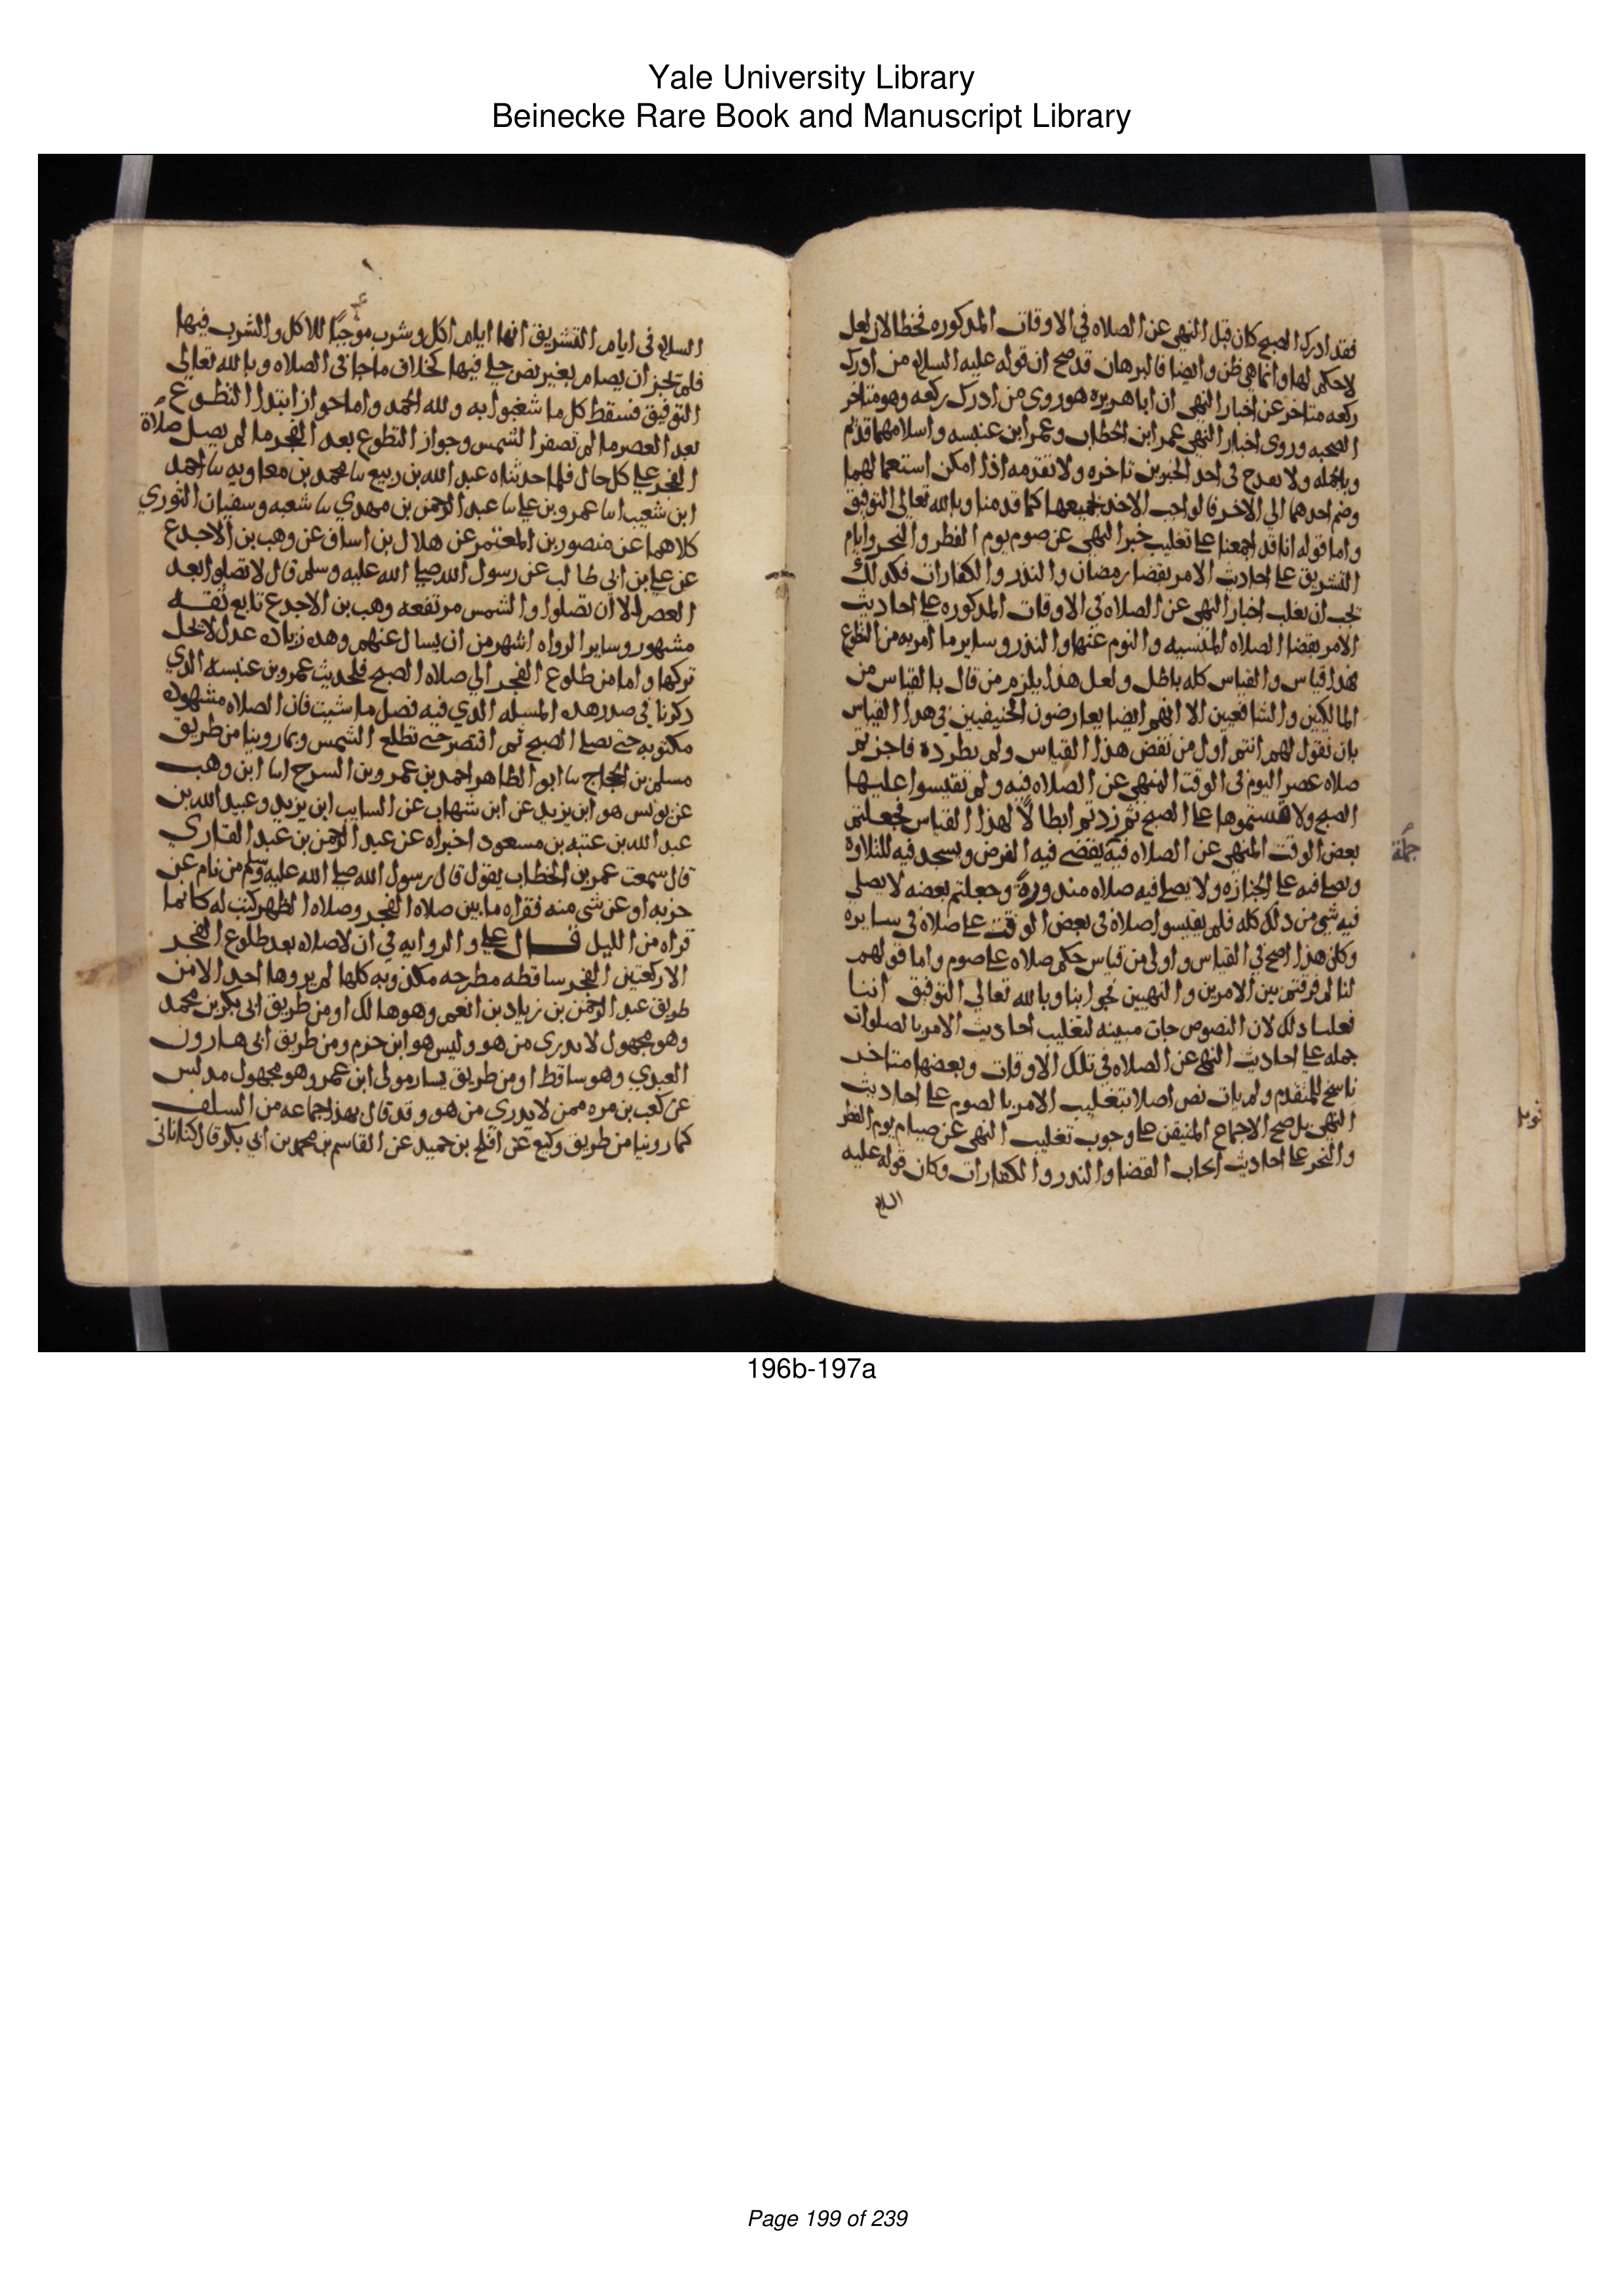 Yale University Library
Beinecke Rare Book and Manuscript Library
فقد ادرك الصبح كان قبل النهي عن الصلاه في الاوقات المذكوره فخطا لان لعل
لا حكم لها وانما هي ظن وايضا فالبرهان قد صح ان قوله عليه السلام من ادرك
ركعه متاخر عن اخبار النهي ان ابا هريره هو روى من ادرك ركعه وهو متاخر
الصحبه وروى اخبار النهي عمر ابن الخطاب وعمر ابن عنبسه واسلامهما قديم
وبالجمله ولا يقدح في احد الخبرين تاخره ولا تقدمه اذا امكن استعمالهما
وضم احدهما الي الاخر فالواجب الاخذ بجميعها كما قدمنا وبالله تعالى التوفيق
واما قوله انا قد اجمعنا على تغليب خبر النهي عن صوم يوم الفطر والنحر وايام
التشريق على احاديث الامر بقضا رمضان والنذر والكفارات فكذلك
يجب ان يغلب اخبار النهي عن الصلاه في الاوقات المذكوره على احاديث
الامر بقضا الصلاه المنسيه والنوم عنها والنذر وساير ما امر به من التطوع
فهذا قياس والقياس كله باطل ولعل هذا يلزم من قال بالقياس من
المالكيين والشافعيين الا انهم ايضا يعارضون الحنيفيين في هذا القياس
بان نقول لهم انتم اول من نقض هذا القياس ولم يطرده فاجزتم
صلاه عصر اليوم في الوقت المنهي عن الصلاه فيه ولم تقيسوا عليها
الصبح ولا قستموها على الصبح ثم زدتم ابطالا لهذا القياس فجعلتم
بعض الوقت المنهي عن الصلاه فيه يقضى فيه الفرض ويسجد فيه للتلاوه
جملة
ويصلى فيه على الجنازه ولا يصلى فيه صلاه منذورة وجعلتم بعضه لا يصلي
فيه شي من ذلك كله فلم يقيسوا صلاة في بعض الوقت على صلاة في سايره
وكان هذا اصح في القياس واولى من قياس حكم صلاه على صوم واما قولهم
لنا لم فرقتم بين الامرين والنهيين فجوابنا وبالله تعالى التوفيق اننا
فعلنا ذلك لان النصوص جات مبينه لتغليب احاديث الامر بالصلوات
جمله على احاديث النهي عن الصلاه في تلك الاوقات وبعضها متاخر
ناسخ للمتقدم ولم يات نص اصلا بتغليب الامر بالصوم على احاديث
النهي بل صح الاجماع المتيقن على وجوب تغليب النهي عن صيام يوم الفطر
والنحر على احاديث ايجاب القضا والنذر والكفارات وكان قوله عليه
السلام
السلام في ايام التشريق انها ايام اكل وشرب موجبا للاكل والشرب فيها
فلم يجز ان يصام بغير نص جلي فيها بخلاف ما جا في الصلاه وبالله تعالى
التوفيق فسقط كل ما شغبوا به ولله الحمد واما جواز ابتدا التطوع
بعد العصر ما لم تصفر الشمس وجواز التطوع بعد الفجر ما لم يصل صلاة
الفجر على كل حال فلما حدثناه عبد الله بن ربيع سا محمد بن معاويه سا احمد
ابن شعيب انا عمرو بن علي سا عبد الرحمن بن مهدي سا شعبه وسفيان الثوري
كلاهما عن منصور بن المعتمر عن هلال بن اساف عن وهب بن الاجدع
عن علي بن ابي طالب عن رسول الله صلى الله عليه وسلم قال لا تصلوا بعد
العصر الا ان تصلوا والشمس مرتفعه وهب بن الاجدع تابع ثقه
مشهور وساير الرواه اشهر من ان يسال عنهم وهذه زياده عدل لا يحل
تركها واما من طلوع الفجر الي صلاه الصبح فلحديث عمرو بن عنبسه الذي
ذكرنا في صدر هذه المسله الذي فيه فصل ما شيت فان الصلاه مشهوده
مكتوبه حتى تصلي الصبح ثم اقتصر حتى تطلع الشمس وبما روينا من طريق
مسلم بن الحجاج سا ابو الطاهر احمد بن عمرو بن السرح انا ابن وهب
عن يونس هو ابن يزيد عن ابن شهاب عن السايب ابن يزيد وعبيد الله بن
عبد الله بن عتبه بن مسعود اخبراه عن عبد الرحمن بن عبد القاري
قال سمعت عمر بن الخطاب يقول قال رسول الله صلى الله عليه وسلم من نام عن
حزبه او عن شي منه فقراه ما بين صلاه الفجر وصلاه الظهر كتب له كانما
قراه من الليل قال علي والروايه في ان لا صلاه بعد طلوع الفجر
الا ركعتين الفجر ساقطه مطرحه مكذوبه كلها لم يروها احد الا من
طريق عبد الرحمن بن زياد بن انعم وهو هالك او من طريق ابي بكر بن محمد
وهو مجهول لا يدرى من هو وليس هو ابن حزم ومن طريق ابي هارون
العبدي وهو ساقط او من طريق يسار مولى ابن عمر وهو مجهول مدلس
عن كعب بن مره ممن لا يدري من هو وقد قال بهذا جماعه من السلف
كما روينا من طريق وكيع عن افلح بن حميد عن القاسم بن محمد بن ابي بكر قال كنا ناتي
196b-197a
Page 199 of 239